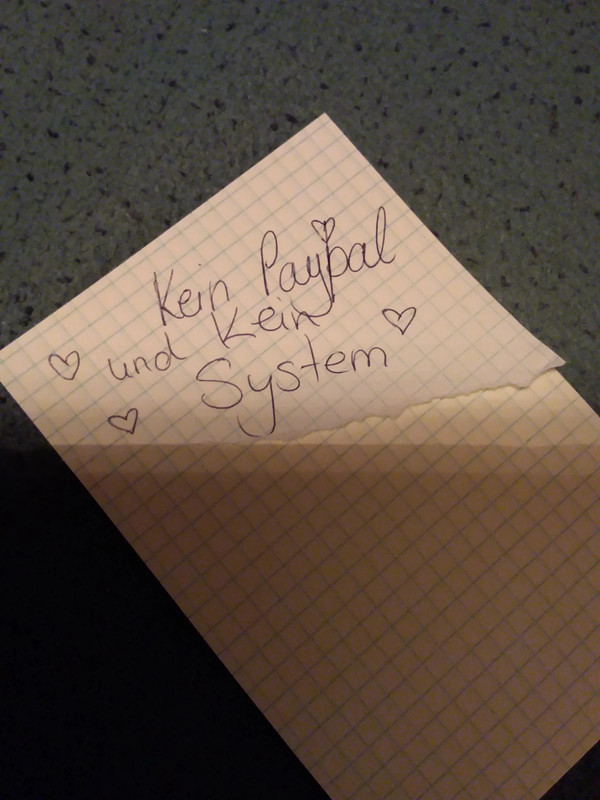 Kein Paypal
und Kein
System